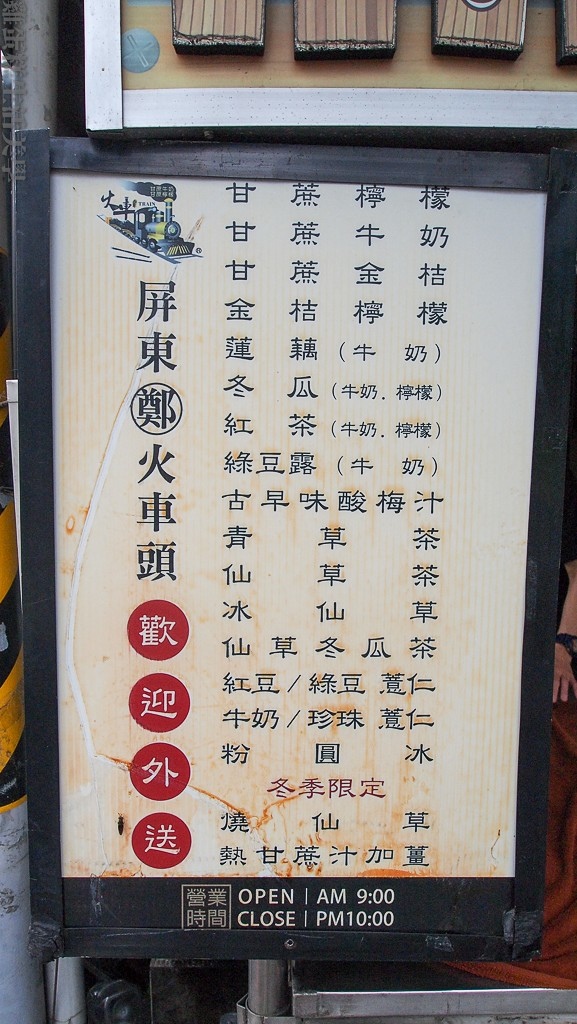 甘蔗牛奶
甘蔗檸檬
火車
TRAIN
®
屏東鄭火車頭
歡迎外送
甘蔗檸檬
甘蔗牛奶
甘蔗金桔
金桔檸檬
蓮藕(牛奶)
冬瓜(牛奶.檸檬)
紅茶(牛奶.檸檬)
綠豆露(牛奶)
古早味酸梅汁
青草茶
仙草茶
冰仙草
仙草冬瓜茶
紅豆/綠豆薏仁
牛奶/珍珠薏仁
粉圓冰
冬季限定
燒仙草
熱甘蔗汁加薑
營業時間
OPEN | AM 9:00
CLOSE | PM10:00